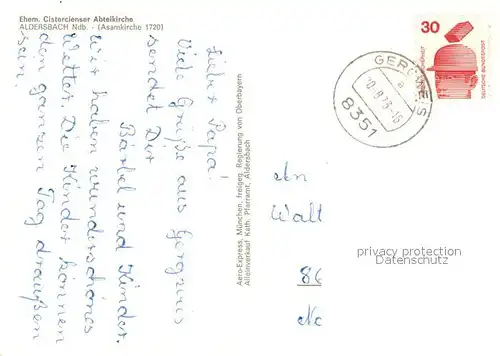 Ehem. Cistercienser Abteikirche
ALDERSBACH Ndb. - (Asamkirche 1720)
Lieber Papa!
Viele Grüße aus Gergweis
sendet Dir
Bärbel und Kinder.
Wir haben wunderschönes
Wetter. Die Kinder können
den ganzen Tag draußen
sein.
Aero-Express, München, freigeg. Regierung von Oberbayern
Alleinverkauf Kath. Pfarramt, Aldersbach
30
DEUTSCHE BUNDESPOST
GERGWEIS
a
8351
An
Walt
86
Ne
privacy protection
Datenschutz